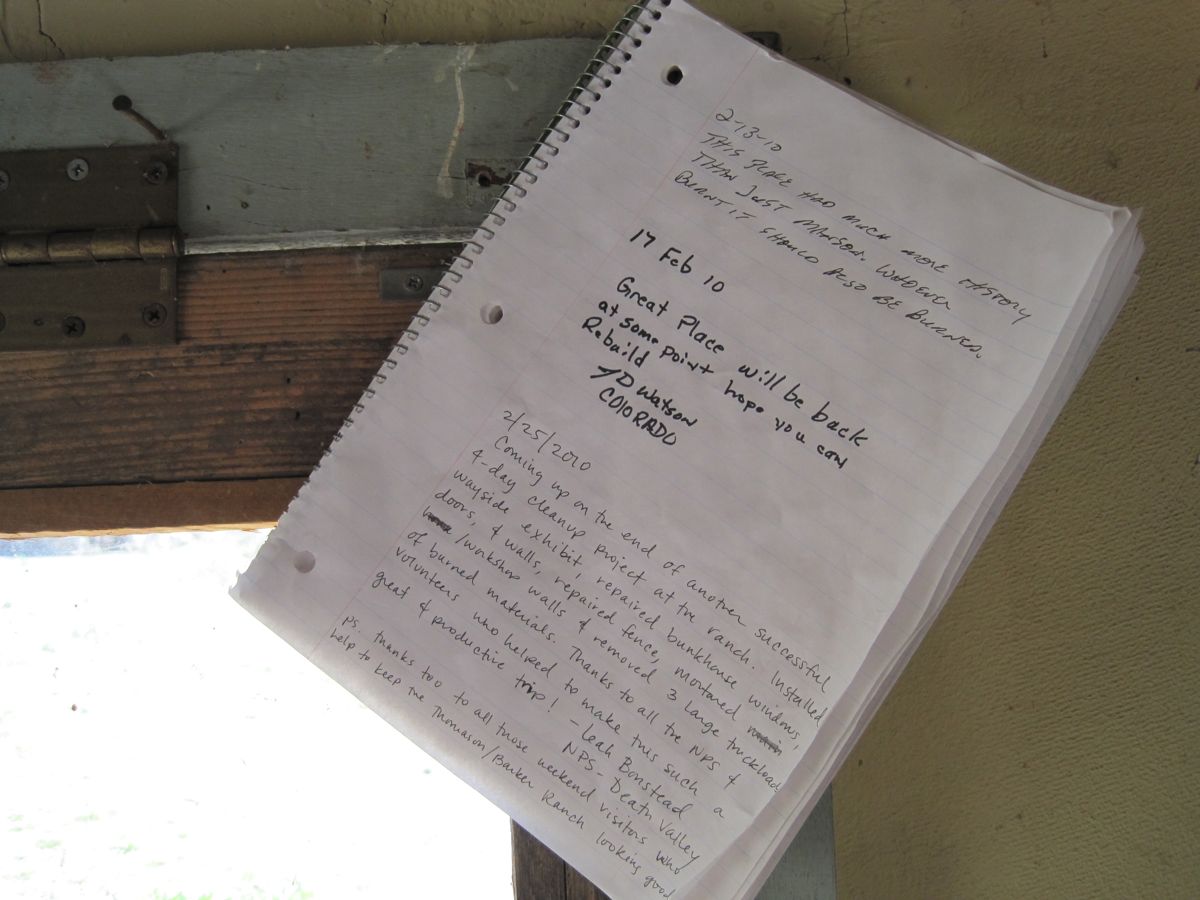 2-13-10
THIS PLACE HAD MUCH MORE HISTORY
THAN JUST MANSON. WHOEVER
BURNT IT SHOULD ALSO BE BURNED.
17 Feb 10
Great Place will be back
at some point hope you can
Rebuild
JD Watson
COLORADO
2/25/2010
Coming up on the end of another successful
4-day cleanup project at the ranch. Installed
wayside exhibit, repaired bunkhouse windows,
doors, & walls, repaired fence, mortared
/workshop walls & removed 3 large truckloads
of burned materials. Thanks to all the NPS &
volunteers who helped to make this such a
great & productive trip! - Leah Bonstead
NPS - Death Valley
ps. thanks too to all those weekend visitors who
help to keep the Thomason/Barker Ranch looking good